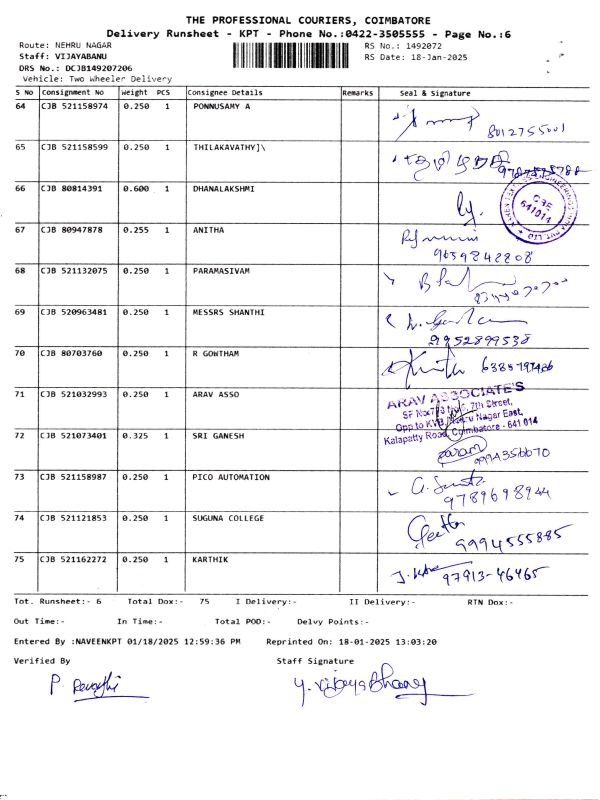 THE PROFESSIONAL COURIERS, COIMBATORE
Delivery Runsheet - KPT - Phone No.:0422-3505555 - Page No.:6
Route: NEHRU NAGAR RS No.: 1492072
Staff: VIJAYABANU RS Date: 18-Jan-2025
DRS No.: DCJB149207206
Vehicle: Two Wheeler Delivery
S No Consignment No Weight PCS Consignee Details Remarks Seal & Signature
64 CJB 521158974 0.250 1 PONNUSAMY A
8012755001
65 CJB 521158599 0.250 1 THILAKAVATHY]\
66 CJB 80814391 0.600 1 DHANALAKSHMI
CBE
641014
67 CJB 80947878 0.255 1 ANITHA
9659842808
68 CJB 521132075 0.250 1 PARAMASIVAM
69 CJB 520963481 0.250 1 MESSRS SHANTHI
9952899538
70 CJB 80703760 0.250 1 R GOWTHAM
71 CJB 521032993 0.250 1 ARAV ASSO
ARAV ASSOCIATE'S
7th Street,
Opp to KVB, Nehru Nagar East,
Kalapatty Road, Coimbatore - 641 014
72 CJB 521073401 0.325 1 SRI GANESH
73 CJB 521158987 0.250 1 PICO AUTOMATION
9789698944
74 CJB 521121853 0.250 1 SUGUNA COLLEGE
Geetha
9994555885
75 CJB 521162272 0.250 1 KARTHIK
97913-46465
Tot. Runsheet:- 6 Total Dox:- 75 I Delivery:- II Delivery:- RTN Dox:-
Out Time:- In Time:- Total POD:- Delvy Points:-
Entered By :NAVEENKPT 01/18/2025 12:59:36 PM Reprinted On: 18-01-2025 13:03:20
Verified By Staff Signature
P. Revathi Y. VijayaBhanu